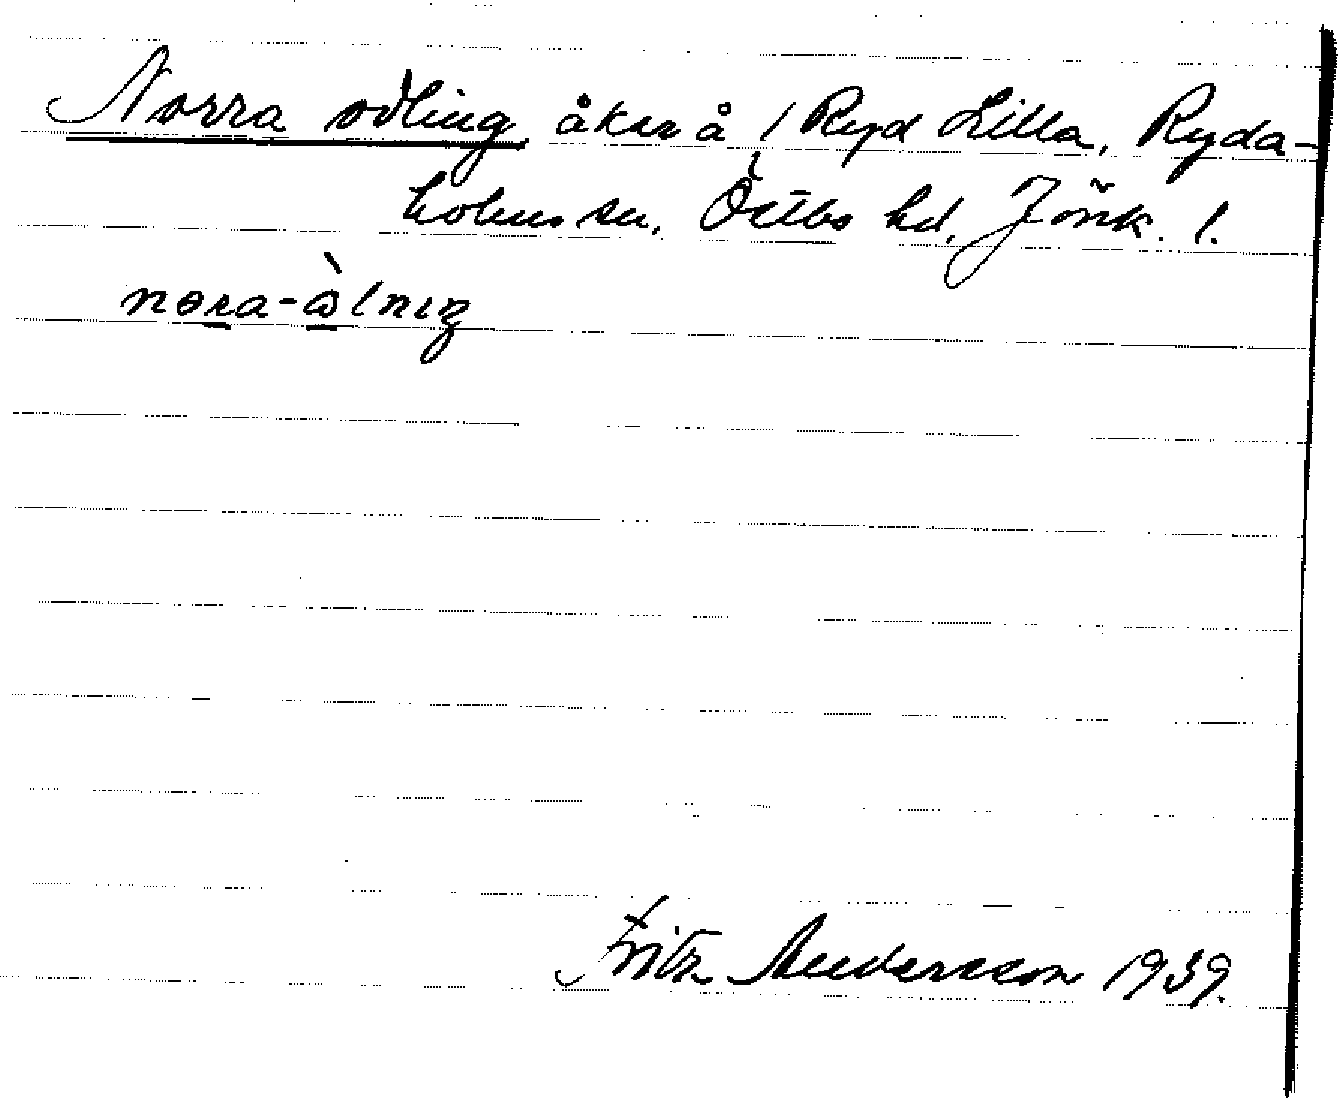 Norra odling, åker å 1 Ryd Lilla, Ryda-
holms sn, Östbo hd, Jönk. l.
nɵra-òlnıŋ
Fritz Andersson 1939.